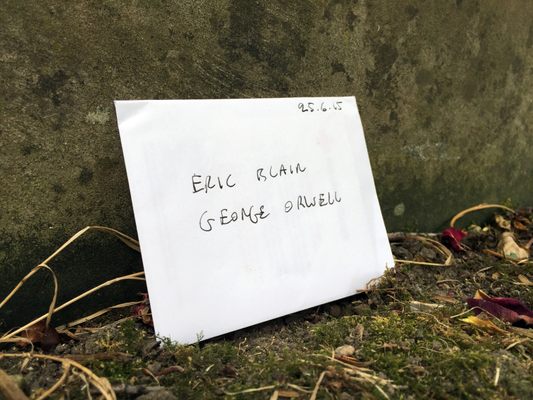 25.6.15
ERIC BLAIR
GEORGE ORWELL